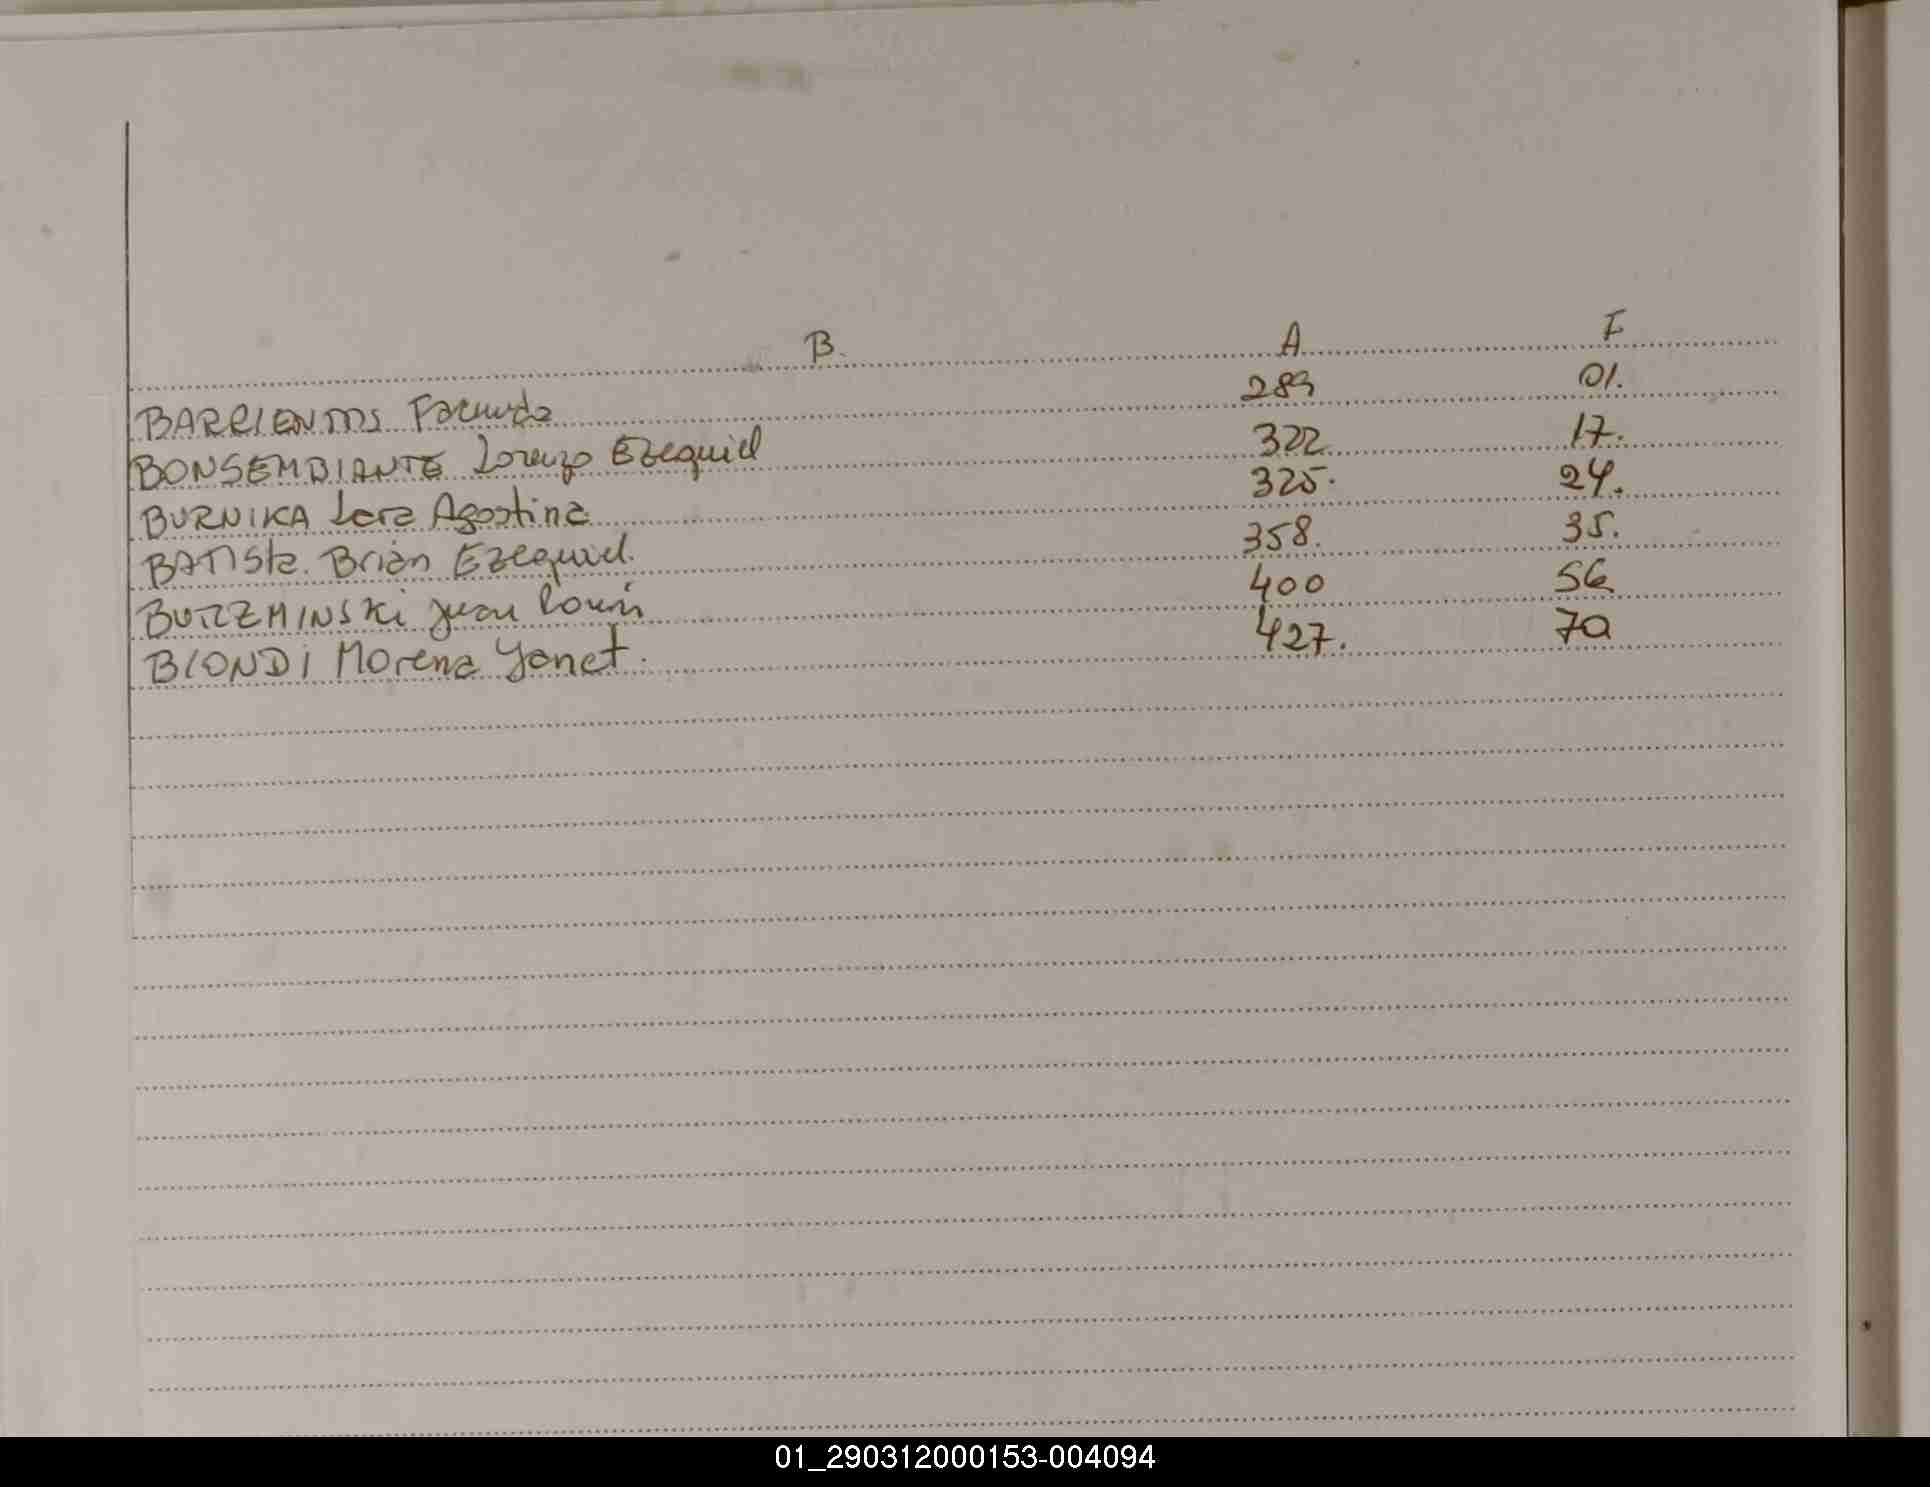 B. A F
BARRIENTOS Facundo 289 01.
BONSEMBIANTE Lorenzo Ezequiel 322 17.
BURNIKA Lara Agostina 325. 24.
BATISta. Brian Ezequiel. 358. 35.
BURZMINSKi Juan 400 56
BIONDi Morena Yanet. 427. 70
01_290312000153-004094